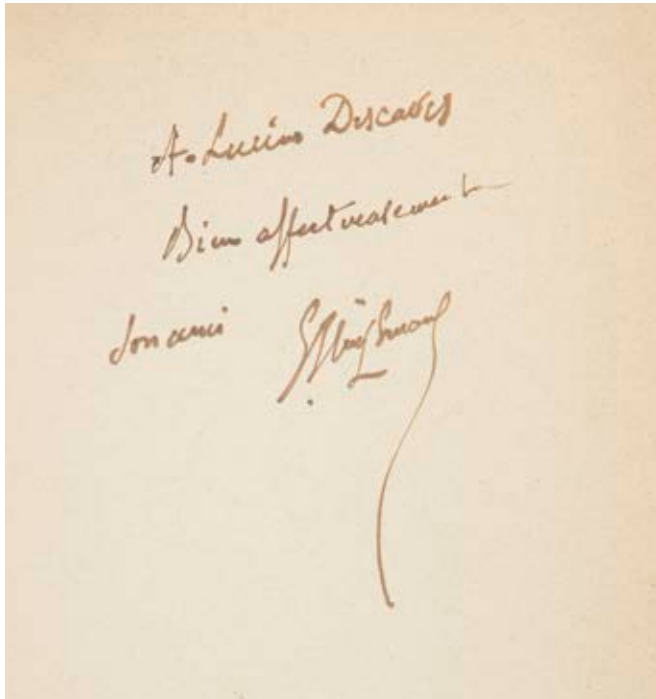 A. Lucien Descaves
Bien affectueusement
son ami G. Huysmans